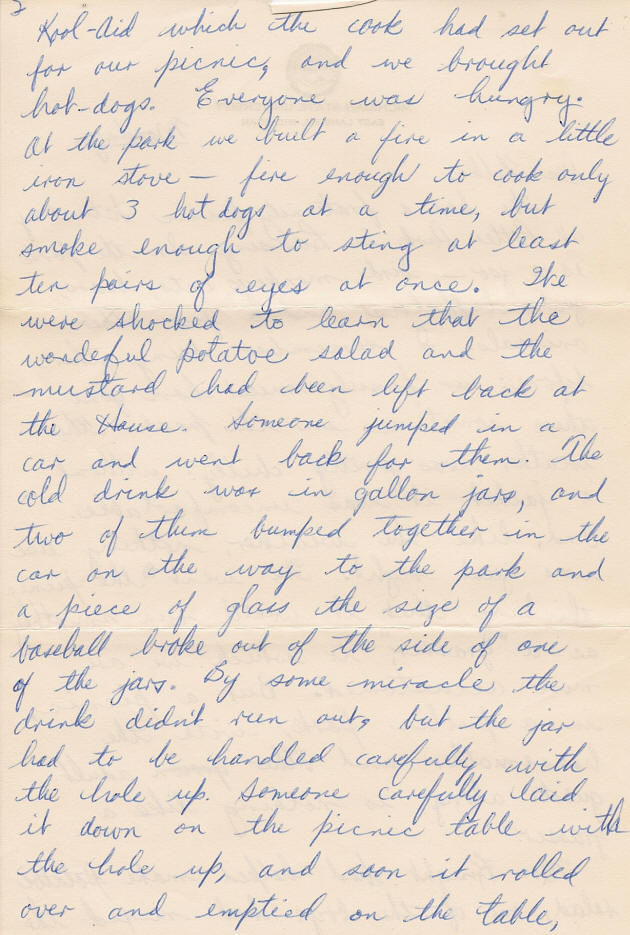 2
Kool-Aid which the cook had set out
for our picnic, and we brought
hot-dogs. Everyone was hungry.
At the park we built a fire in a little
iron stove — fire enough to cook only
about 3 hot dogs at a time, but
smoke enough to sting at least
ten pairs of eyes at once. We
were shocked to learn that the
wondeful potatoe salad and the
mustard had been left back at
the House. Someone jumped in a
car and went back for them. The
cold drink was in gallon jars, and
two of them bumped together in the
car on the way to the park and
a piece of glass the size of a
baseball broke out of the side of one
of the jars. By some miracle the
drink didn't run out, but the jar
had to be handled carefully with
the hole up. Someone carefully laid
it down on the picnic table with
the hole up, and soon it rolled
over and emptied on the table,